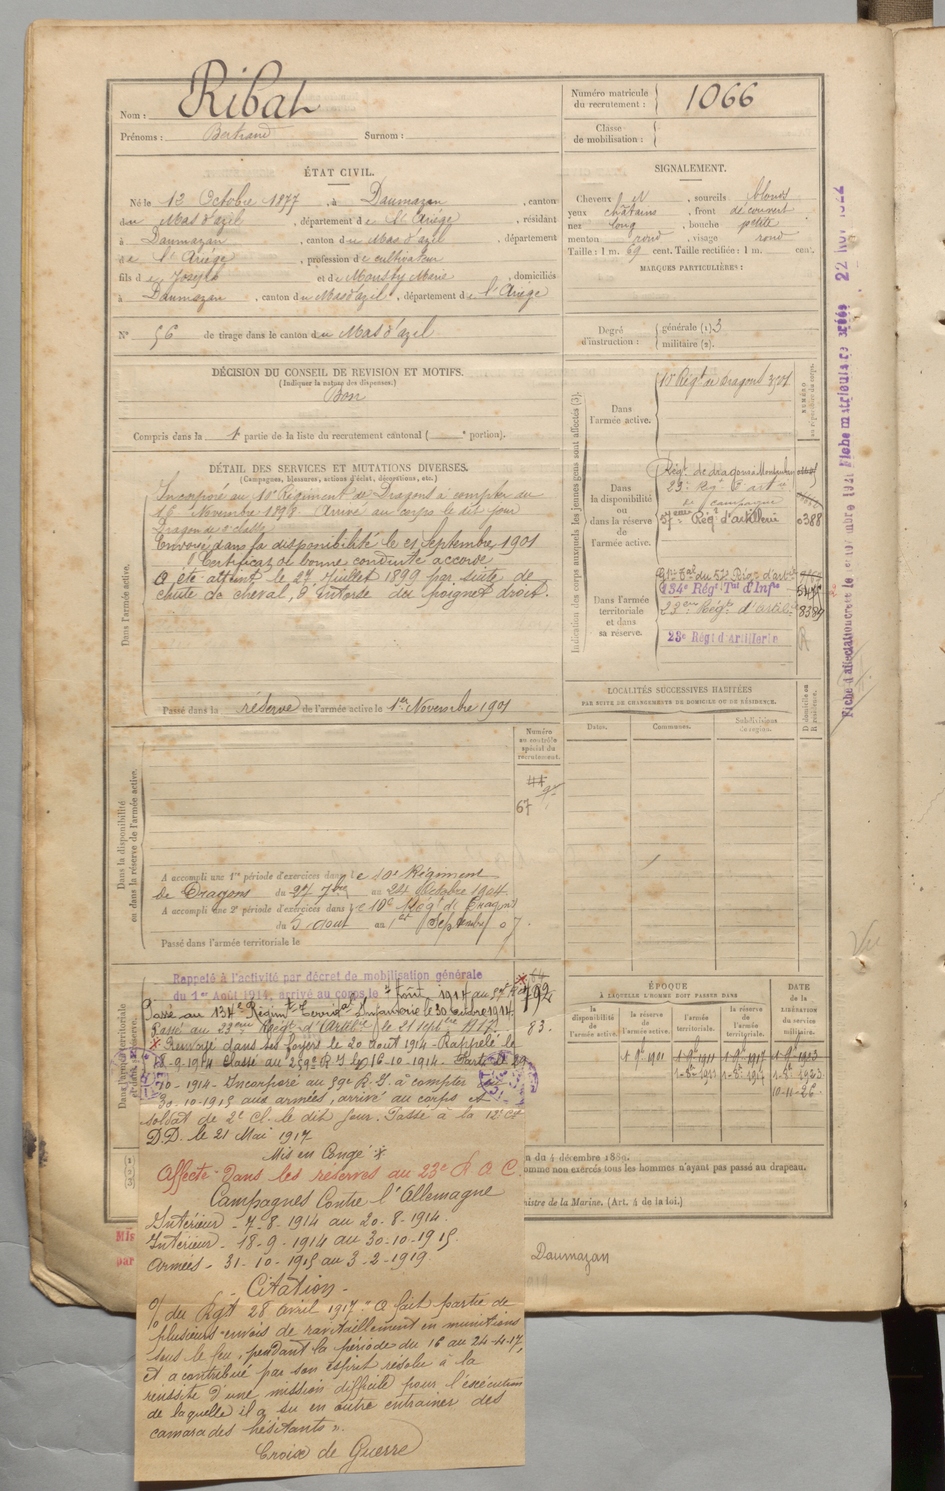 Nom : Ribat
Prénoms : Bertrand Surnom :
Numéro matricule du recrutement : 1066
Classe de mobilisation :
ÉTAT CIVIL.
Né le 12 Octobre 1877, à Daumazan, canton
du Mas d'azil, département de l'Ariége, résidant
à Daumazan, canton du Mas d'azil, département
de l'Ariége, profession de cultivateur
fils de Joseph et de Marie, domiciliés
à Daumazan, canton du Mas d'azil, département de l'Ariége
N° 56 de tirage dans le canton du Mas d'azil
SIGNALEMENT.
Cheveux , sourcils blonds
yeux chatains, front découvert
nez long, bouche petite
menton rond, visage rond
Taille : 1 m. 69 cent. Taille rectifiée : 1 m. cent.
MARQUES PARTICULIÈRES :
Degré d'instruction : générale (1) 3
militaire (2).
DÉCISION DU CONSEIL DE REVISION ET MOTIFS.
(Indiquer la nature des dispenses.)
Bon
Compris dans la 1 partie de la liste du recrutement cantonal ( e portion).
DÉTAIL DES SERVICES ET MUTATIONS DIVERSES.
(Campagnes, blessures, actions d'éclat, décorations, etc.)
Dans l'armée active.
Incorporé au 10e Régiment de Dragons à compter du
16 Novembre 1898. Arrivé au corps le dit jour
Dragon de 2e classe
Envoyé dans la disponibilité le 21 Septembre 1901
Certificat de bonne conduite accordé
A été atteint le 27 Juillet 1899 par suite de
chute de cheval, d'entorse du poignet droit.
Passé dans la réserve de l'armée active le 1er Novembre 1901
Indication des corps auxquels les jeunes gens sont affectés (3).
Dans l'armée active.
10e Régt de Dragons
Dans la disponibilité ou dans la réserve de l'armée active.
Régt de dragons Montauban
23e Régt d'artie
de campagne
57eme Régt d'artillerie 0388
Dans l'armée territoriale et dans sa réserve.
134e Régt Tal d'Infie
23eme Régt d'artil. 8389
23e Régt d'Artillerie
LOCALITÉS SUCCESSIVES HABITÉES
PAR SUITE DE CHANGEMENTS DE DOMICILE OU DE RÉSIDENCE.
Dates. Communes. Subdivisions de région. D domicile ou R résidence.
Dans la disponibilité ou dans la réserve de l'armée active.
Numéro au contrôle spécial du recrutement.
67
A accompli une 1re période d'exercices dans le 10e Régiment
de Dragons du 27 7bre au 24 Octobre 1904
A accompli une 2e période d'exercices dans le 10e Régt de Dragons
du 5 août au 1er Septembre 07.
Passé dans l'armée territoriale le
Rappelé à l'activité par décret de mobilisation générale
du 1er Août 1914, arrivé au corps le 7 Août 1914 au 57e
Passé au 134e Régimt Territal Infanterie le 20 octobre 1914.
Passé au 23eme Régt d'Artilie le 21 septbre 1917. 83.
Renvoyé dans ses foyers le 20 août 1914 - Rappelé le
18-9-1914 Classé au 259e R.I. le 16-10-1914. Parti le 29
10-1914 - Incorporé au 59e R.I. à compter du
30-10-1915 aux armées, arrivé au corps et
soldat de 2e Cl. le dit jour. Passé à la 12e Cie
D.D. le 21 Mai 1917
Mis en Congé
Affecté dans les réserves au 23e R.A.C.
Campagnes Contre l'Allemagne
Intérieur - 7-8-1914 au 20-8-1914.
Intérieur - 18-9-1914 au 30-10-1915.
Armées - 31-10-1915 au 3-2-1919.
- Citation -
O/ du Rgt 28 avril 1917 : "A fait partie de
plusieurs envois de ravitaillement en munitions
sous le feu, pendant la période du 16 au 24-4-17,
et a contribué par son esprit résolu à la
réussite d'une mission difficile pour l'exécution
de laquelle il a su en outre entrainer des
camarades hésitants".
Croix de Guerre
ÉPOQUE
À LAQUELLE L'HOMME DOIT PASSER DANS
la disponibilité de l'armée active. la réserve de l'armée active. l'armée territoriale. la réserve de l'armée territoriale.
DATE de la LIBÉRATION du service militaire.
1-9bre 1901 1-9bre 1911 1-9bre 1917 1-9bre 1923
10-11-26
n du 4 décembre 1889.
omme non exercés tous les hommes n'ayant pas passé au drapeau.
nistre de la Marine. (Art. 4 de la loi.)
Mis
par
Daumazan